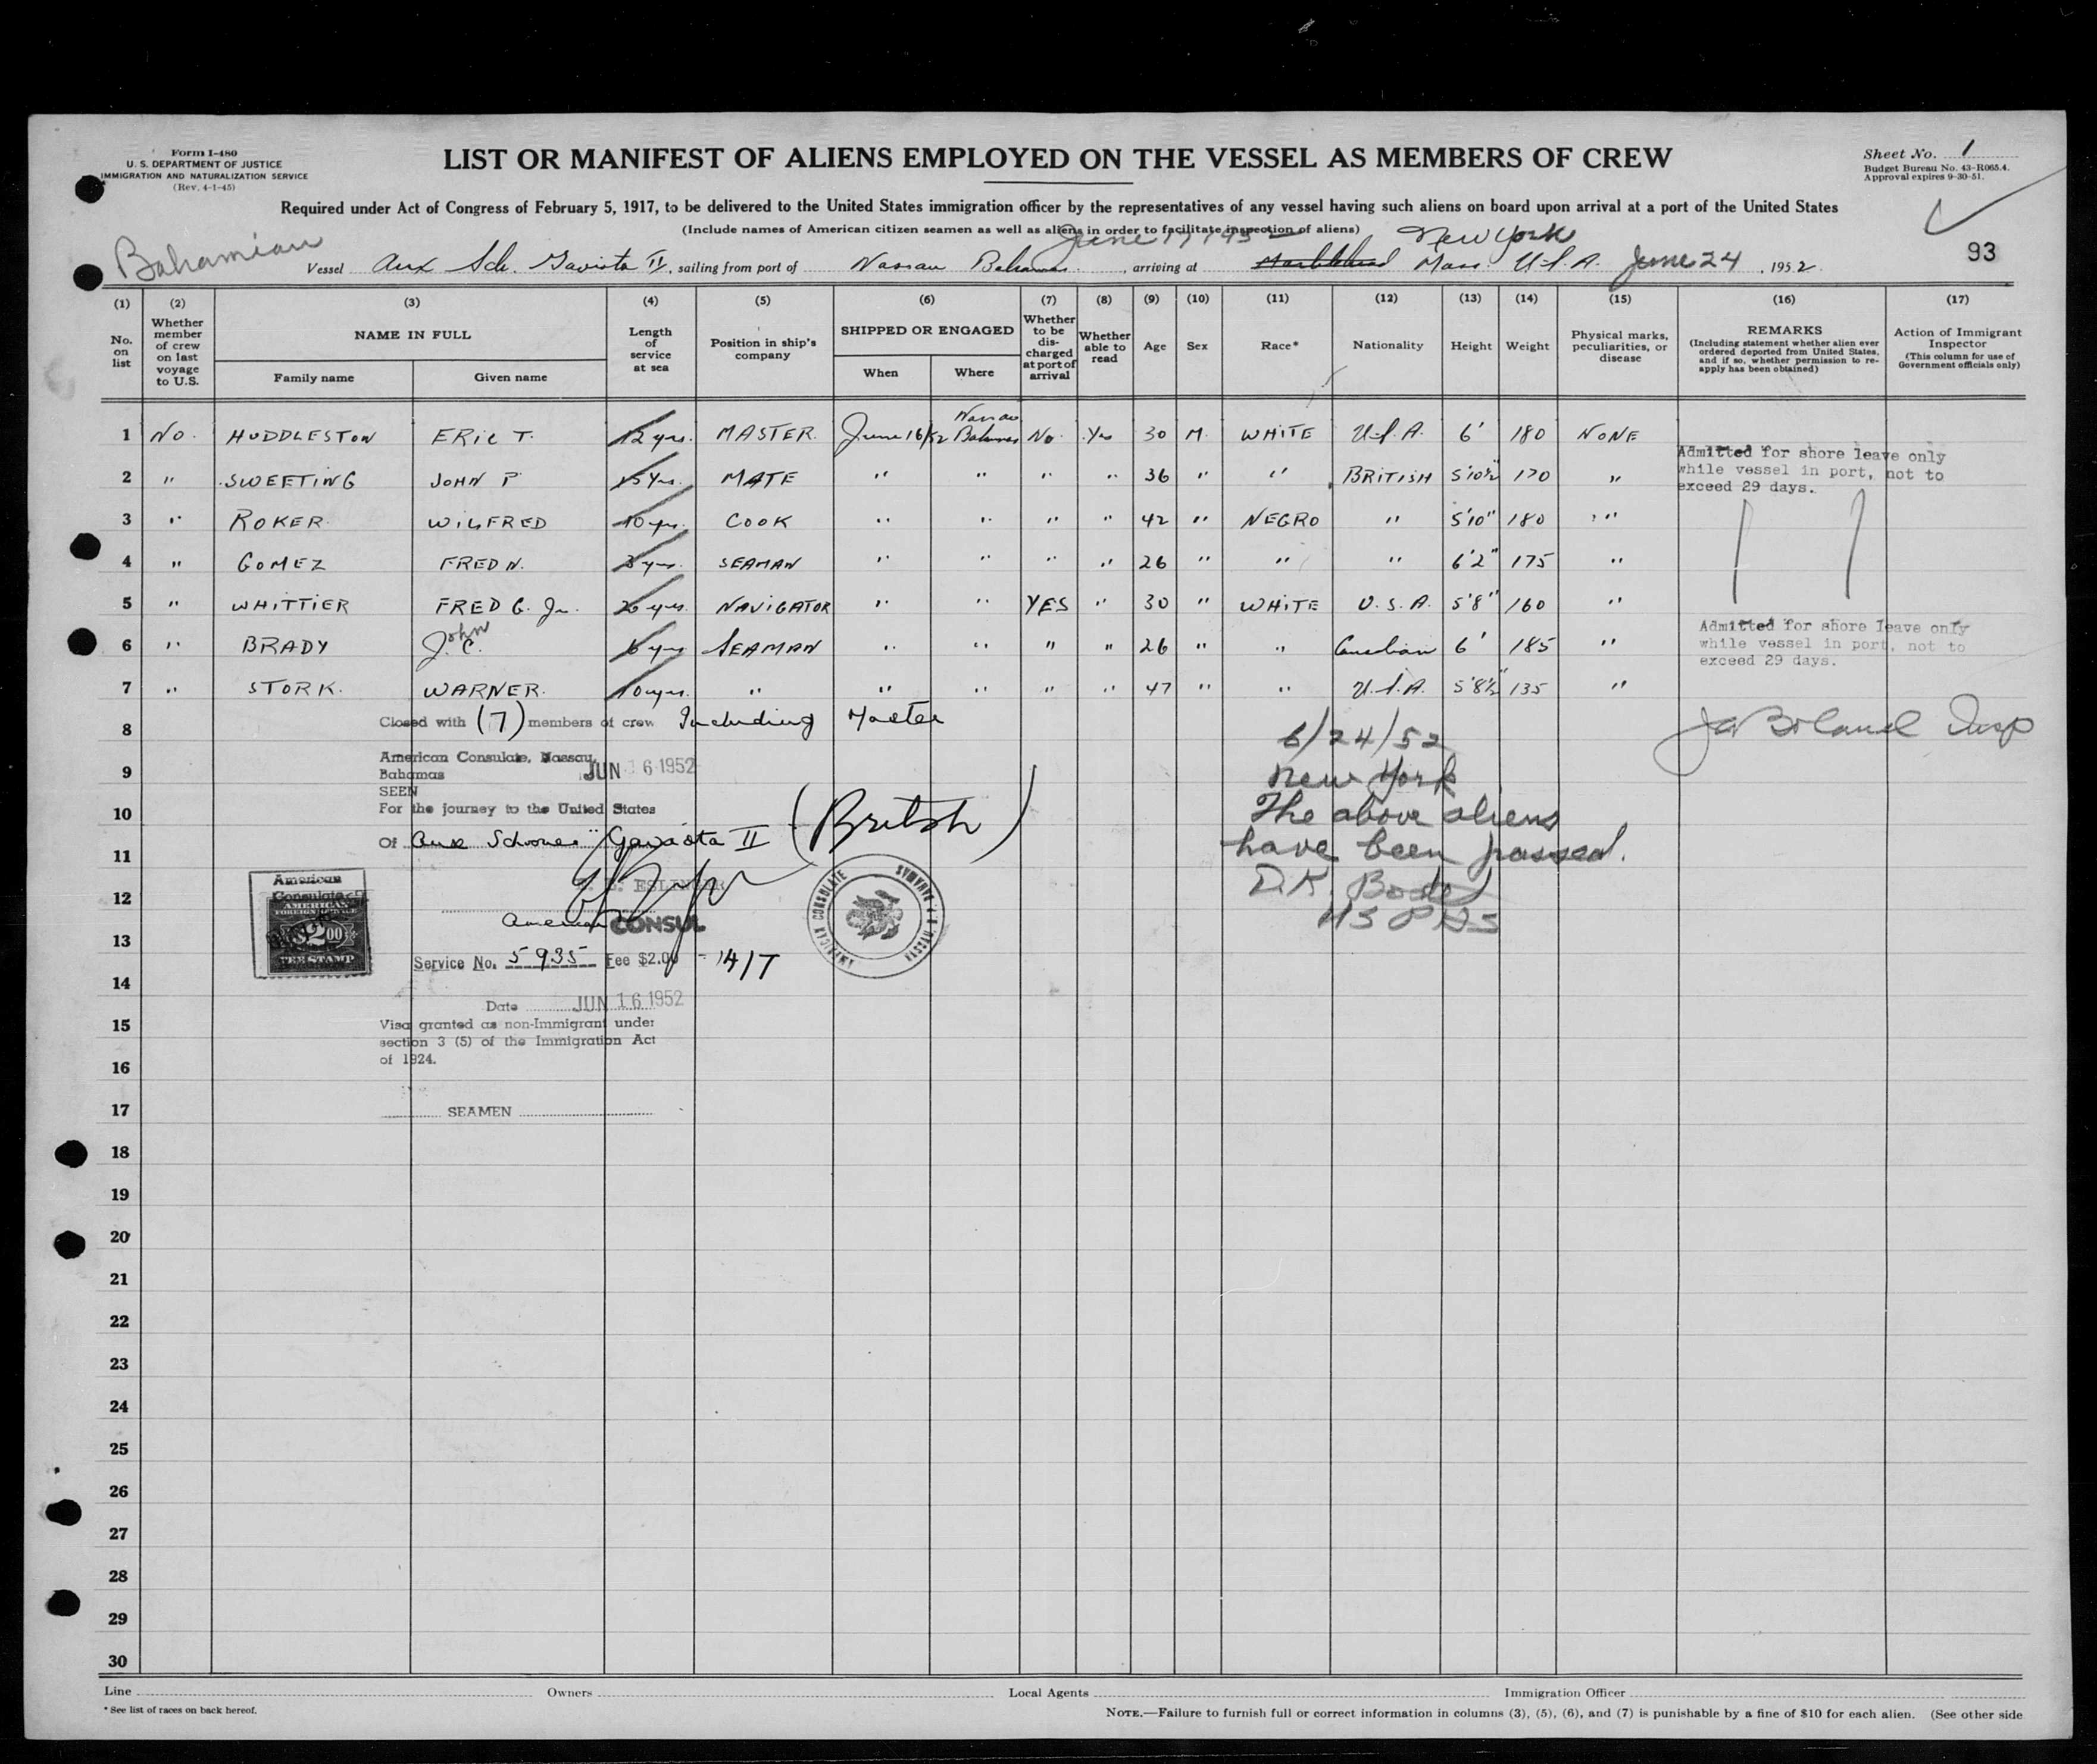 Form I-480
U. S. DEPARTMENT OF JUSTICE
IMMIGRATION AND NATURALIZATION SERVICE
(Rev. 4-1-45)
LIST OR MANIFEST OF ALIENS EMPLOYED ON THE VESSEL AS MEMBERS OF CREW
Sheet No. 1
Budget Bureau No. 43-R065.4.
Approval expires 9-30-51.
Required under Act of Congress of February 5, 1917, to be delivered to the United States immigration officer by the representatives of any vessel having such aliens on board upon arrival at a port of the United States
(Include names of American citizen seamen as well as aliens in order to facilitate inspection of aliens)
Bahamian
June 17 1952
New York
93
Vessel Aux Sch. Gaviota II, sailing from port of Nassau Bahamas, arriving at Marblehead Mass. U.S.A. June 24, 1952
(1) (2) (3) (4) (5) (6) (7) (8) (9) (10) (11) (12) (13) (14) (15) (16) (17)
No. on list
Whether member of crew on last voyage to U.S.
NAME IN FULL
Family name
Given name
Length of service at sea
Position in ship's company
SHIPPED OR ENGAGED
When
Where
Whether to be discharged at port of arrival
Whether able to read
Age
Sex
Race*
Nationality
Height
Weight
Physical marks, peculiarities, or disease
REMARKS
(Including statement whether alien ever ordered deported from United States, and if so, whether permission to re-apply has been obtained)
Action of Immigrant Inspector
(This column for use of Government officials only)
1 No. HUDDLESTON ERIC T. 12 yrs. MASTER June 16/52 Nassau Bahamas No. Yes 30 M. WHITE U.S.A. 6' 180 NONE
2 " SWEETING JOHN P 15 yrs. MATE " " " " 36 " " BRITISH 5'10½" 170 "
3 " ROKER WILFRED 10 yrs. COOK " " " " 42 " NEGRO " 5'10" 180 "
4 " GOMEZ FRED N. 8 yrs. SEAMAN " " " " 26 " " " 6'2" 175 "
5 " WHITTIER FRED G. Jr. 20 yrs. NAVIGATOR " " YES " 30 " WHITE U.S.A. 5'8" 160 "
6 " BRADY J. C. John 6 yrs SEAMAN " " " " 26 " " Canadian 6' 185 "
7 " STORK. WARNER. 10 yrs. " " " " " 47 " " U.S.A. 5'8½" 135 "
Admitted for shore leave only
while vessel in port, not to
exceed 29 days.
Admitted for shore leave only
while vessel in port, not to
exceed 29 days.
Closed with (7) members of crew Including Master
American Consulate, Nassau,
Bahamas
JUN 16 1952
SEEN
For the journey to the United States
Of Aux Schooner "Gaviota II (British)
American CONSUL
Service No. 5935 Fee $2.00 14/T
Date JUN 16 1952
Visa granted as non-Immigrant under
section 3 (5) of the Immigration Act
of 1924.
SEAMEN
American
Consulate
AMERICAN
FOREIGN SERVICE
$2.00
FEE STAMP
AMERICAN CONSULATE
6/24/52
New York
The above aliens
have been passed.
8
9
10
11
12
13
14
15
16
17
18
19
20
21
22
23
24
25
26
27
28
29
30
Line Owners Local Agents Immigration Officer
* See list of races on back hereof.
NOTE.—Failure to furnish full or correct information in columns (3), (5), (6), and (7) is punishable by a fine of $10 for each alien. (See other side